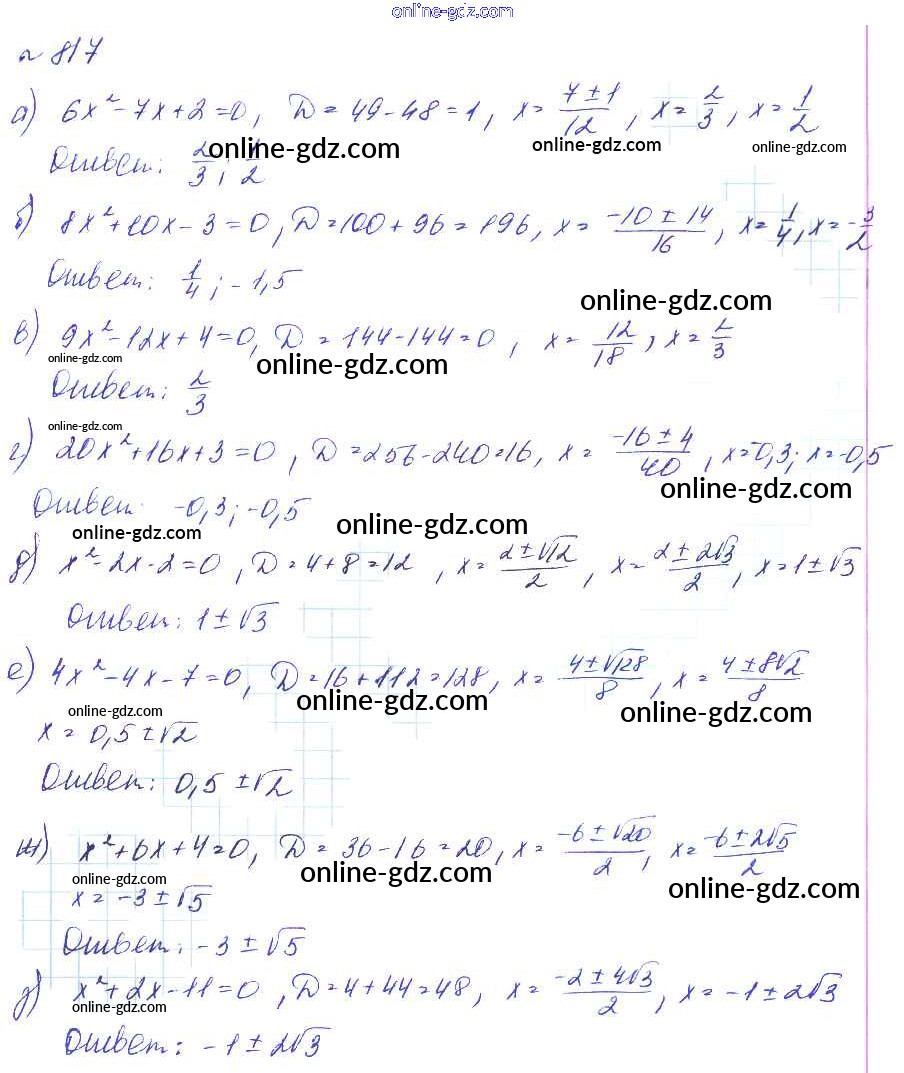 online-gdz.com
№ 817
а) 6x² - 7x + 2 = 0, D = 49 - 48 = 1, x = (7 ± 1)/12, x = 2/3, x = 1/2
Ответ: 2/3; 1/2
online-gdz.com online-gdz.com online-gdz.com
б) 8x² + 10x - 3 = 0, D = 100 + 96 = 196, x = (-10 ± 14)/16, x = 1/4, x = -3/2
Ответ: 1/4; -1,5
online-gdz.com
в) 9x² - 12x + 4 = 0, D = 144 - 144 = 0, x = 12/18, x = 2/3
online-gdz.com online-gdz.com
Ответ: 2/3
online-gdz.com
г) 20x² + 16x + 3 = 0, D = 256 - 240 = 16, x = (-16 ± 4)/40, x = -0,3; x = -0,5
online-gdz.com
Ответ: -0,3; -0,5
online-gdz.com online-gdz.com
д) x² - 2x - 2 = 0, D = 4 + 8 = 12, x = (2 ± √12)/2, x = (2 ± 2√3)/2, x = 1 ± √3
Ответ: 1 ± √3
е) 4x² - 4x - 7 = 0, D = 16 + 112 = 128, x = (4 ± √128)/8, x = (4 ± 8√2)/8
online-gdz.com online-gdz.com online-gdz.com
x = 0,5 ± √2
Ответ: 0,5 ± √2
ж) x² + 6x + 4 = 0, D = 36 - 16 = 20, x = (-6 ± √20)/2, x = (-6 ± 2√5)/2
online-gdz.com online-gdz.com online-gdz.com
x = -3 ± √5
Ответ: -3 ± √5
з) x² + 2x - 11 = 0, D = 4 + 44 = 48, x = (-2 ± 4√3)/2, x = -1 ± 2√3
online-gdz.com
Ответ: -1 ± 2√3